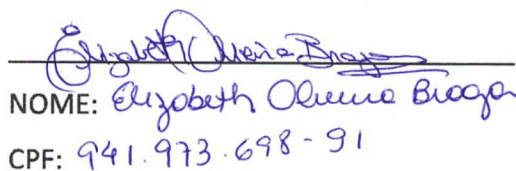 Elizabeth Oliveira Braga
NOME: Elizabeth Oliveira Braga
CPF: 941.973.698-91